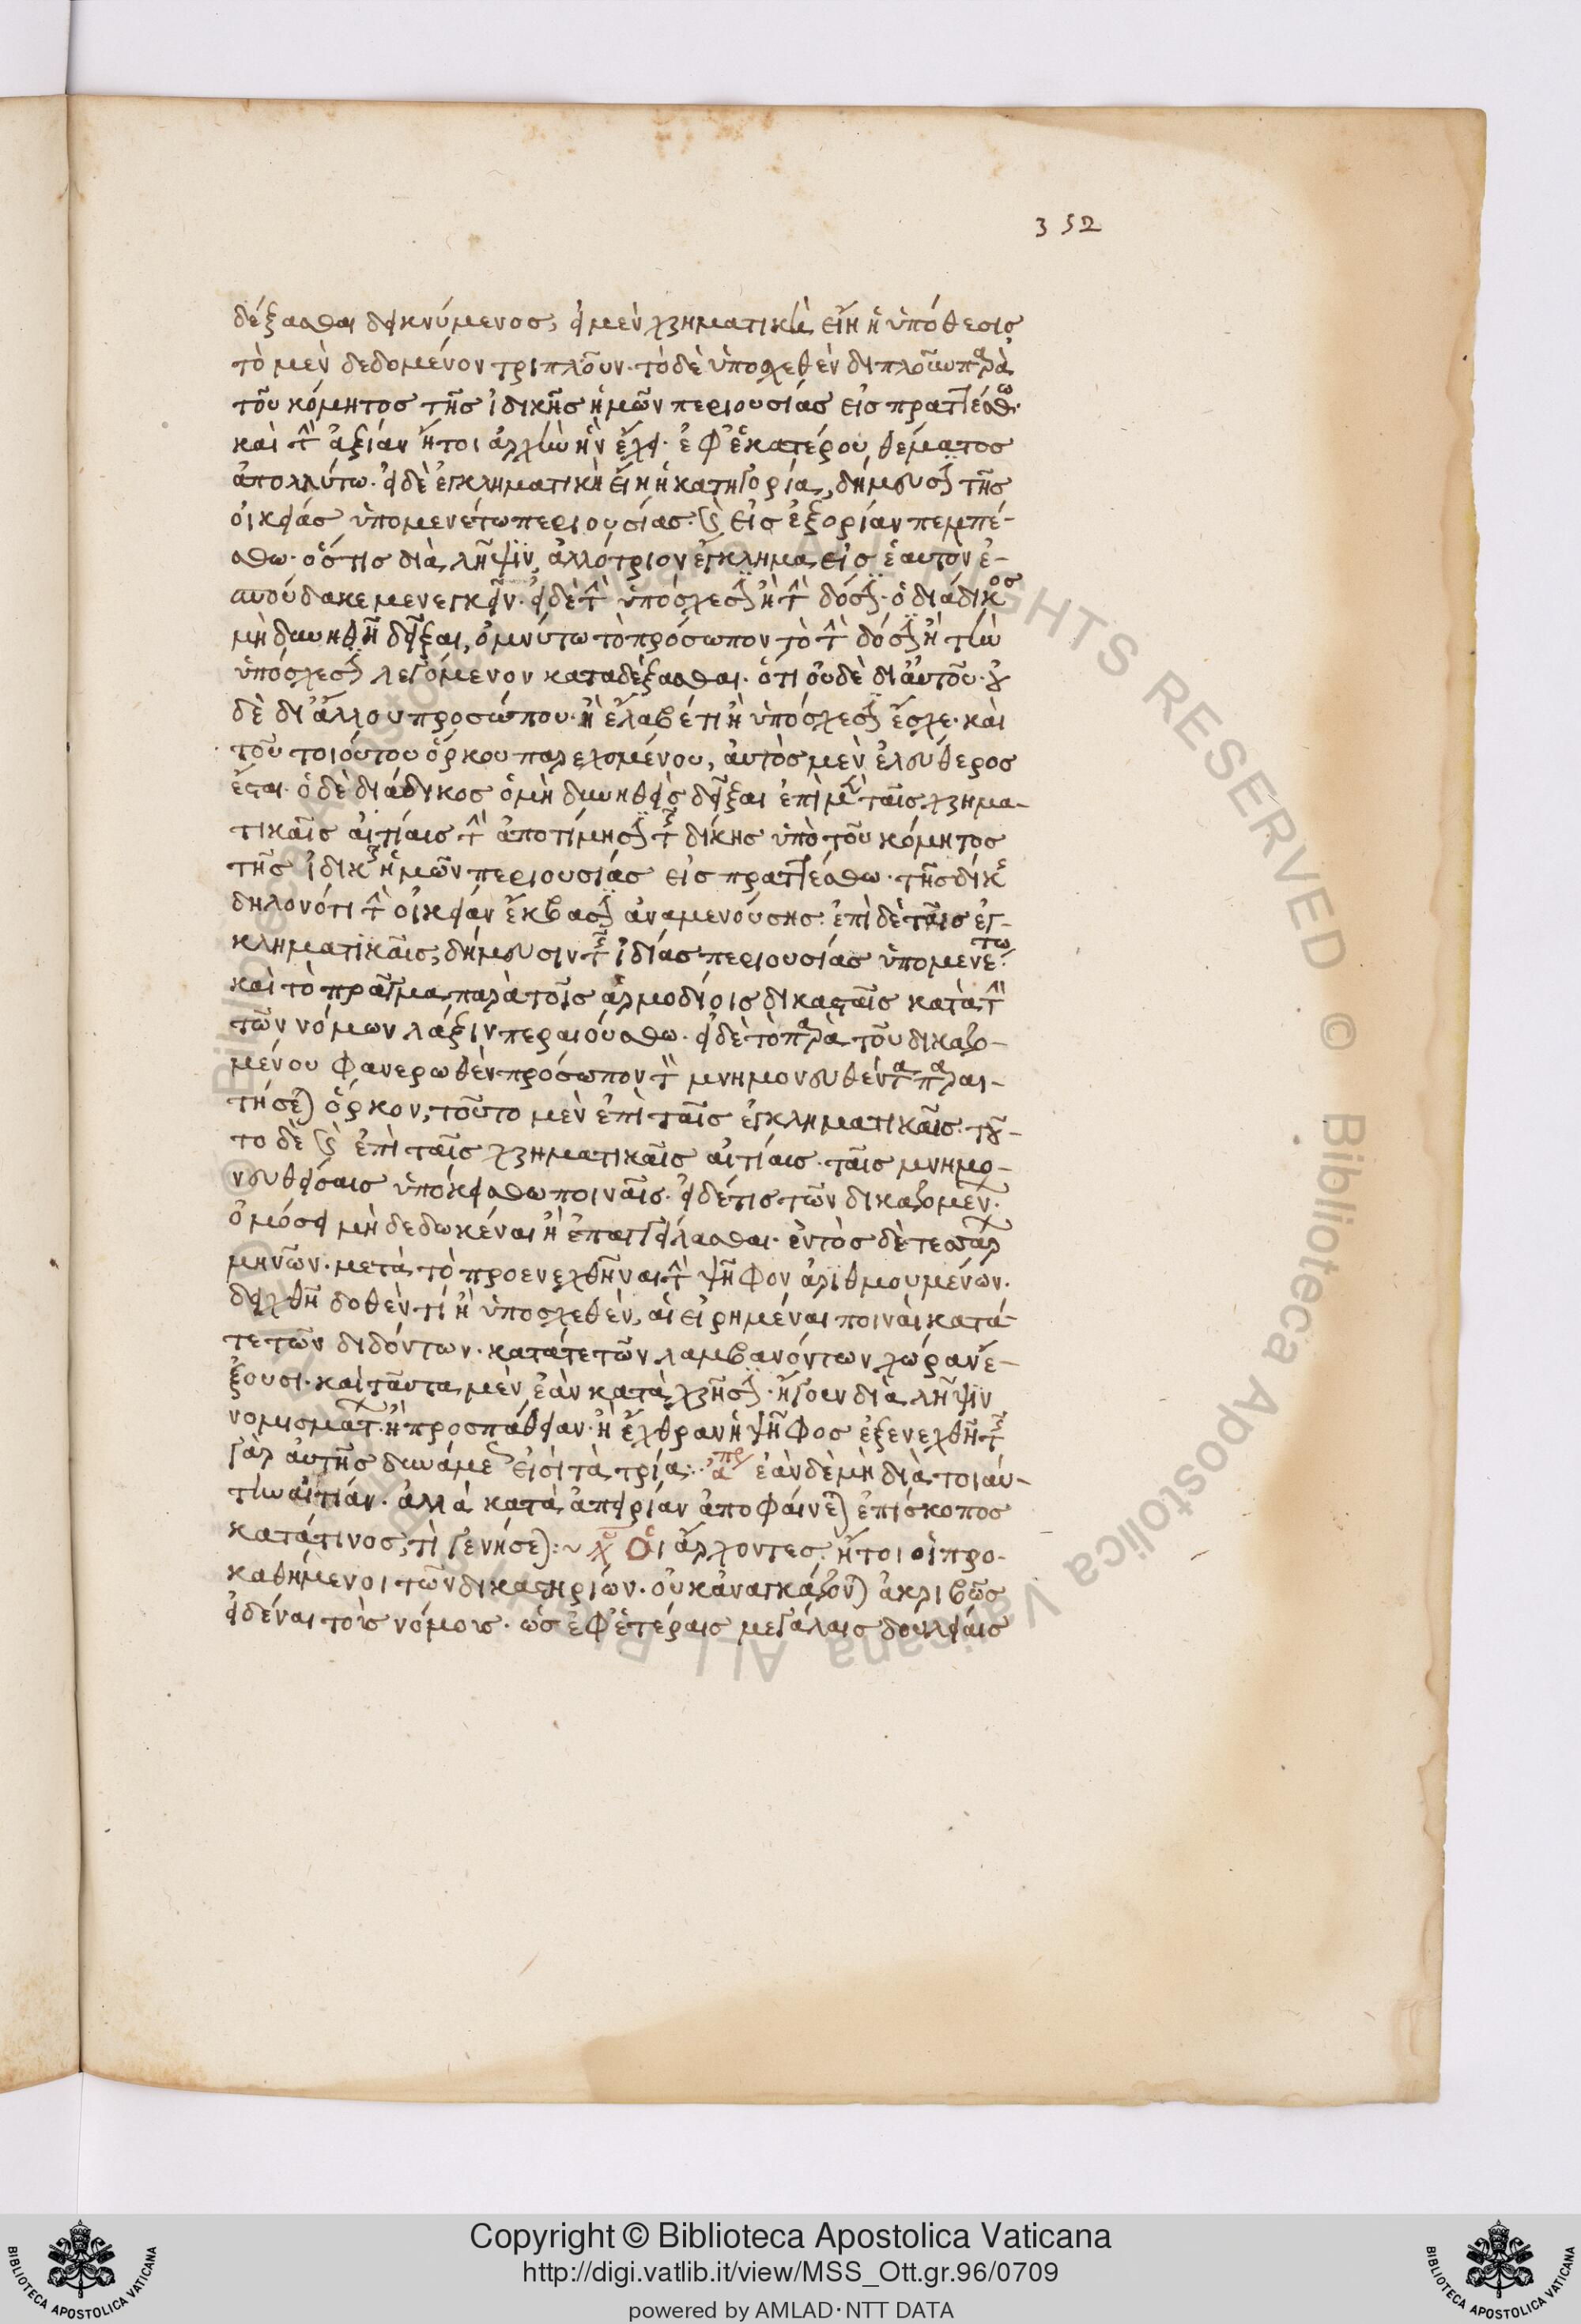 352
δέξασθαι δεικνύμενος, εἰ μὲν χρηματικὴ εἴη ἡ ὑπόθεσις
τὸ μὲν δεδομένον τριπλοῦν· τὸ δὲ ὑποσχεθὲν διπλοῦν παρὰ
τοῦ κόμητος τῆς ἰδικῆς ἡμῶν περιουσίας εἰσπραττέσθω·
καὶ τὴν ἀξίαν ἤτοι ἀρχὴν ἣν ἔχει· ἐφ' ἑκατέρου θέματος
ἀπολλύτω· εἰ δὲ ἐγκληματικὴ εἴη ἡ κατηγορία, δήμευσιν τῆς
οἰκείας ὑπομενέτω περιουσίας· καὶ εἰς ἐξορίαν πεμπέ-
σθω· ὅστις διὰ λῆψιν ἀλλότριον ἔγκλημα εἰς ἑαυτὸν ἐ-
σπούδακε μενεγκεῖν· εἰ δὲ τὴν ὑπόσχεσιν ἢ τὴν δόσιν· ὁ διάδικος
μὴ δυνηθῆ δεῖξαι, ὀμνύτω τὸ πρόσωπον τὸ τὴν δόσιν ἢ τὴν
ὑπόσχεσιν λεγόμενον καταδέξασθαι· ὅτι οὐδὲ δι' αὐτοῦ· οὐ
δὲ δι' ἄλλου προσώπου· ἢ ἔλαβέ τι ἢ ὑπόσχεσιν ἔσχε· καὶ
τοῦ τοιούτου ὅρκου παρεχομένου, αὐτὸς μὲν ἐλεύθερος
ἔσται· ὁ δὲ διάδικος ὁ μὴ δυνηθεὶς δεῖξαι ἐπὶ μὲν ταῖς χρημα-
τικαῖς αἰτίαις τὴν ἀποτίμησιν τῆς δίκης ὑπὸ τοῦ κόμητος
τῆς ἰδικῆς ἡμῶν περιουσίας εἰσπραττέσθω· τῆς δίκης
δηλονότι τὴν οἰκείαν ἔκβασιν ἀναμενούσης· ἐπὶ δὲ ταῖς ἐγ-
κληματικαῖς, δήμευσιν τῆς ἰδίας περιουσίας ὑπομενέτω
καὶ τὸ πρᾶγμα παρὰ τοῖς ἁρμοδίοις δικασταῖς κατὰ τὴν
τῶν νόμων λάξιν περαιούσθω· εἰ δὲ τὸ παρὰ τοῦ δικαζο-
μένου φανερωθὲν πρόσωπον τὸν μνημονευθέντα παραι-
τήσεται ὅρκον, τοῦτο μὲν ἐπὶ ταῖς ἐγκληματικαῖς· τοῦ-
το δὲ καὶ ἐπὶ ταῖς χρηματικαῖς αἰτίαις· ταῖς μνημο-
νευθείσαις ὑποκείσθω ποιναῖς· εἰ δέ τις τῶν δικαζομένων·
ὀμόσει μὴ δεδωκέναι ἢ ἐπαγγείλασθαι· ἐντὸς δὲ τεσσάρων
μηνῶν· μετὰ τὸ προενεχθῆναι τὴν ψῆφον ἀριθμουμένων·
δειχθῆ δοθέν τι ἢ ὑποσχεθέν, αἱ εἰρημέναι ποιναὶ κατά
τε τῶν διδόντων· κατά τε τῶν λαμβανόντων χώραν ἕ-
ξουσι· καὶ ταῦτα μὲν ἐὰν κατὰ χρῆσιν· ἤγουν διὰ λῆψιν
νομισμάτων· ἢ προσπάθειαν· ἢ ἔχθραν ἡ ψῆφος ἐξενεχθῆ τῆς
γὰρ αὐτῆς δυνάμεως εἰσὶ τὰ τρία: ἀπρ ἐὰν δὲ μὴ διὰ τοιαύ-
την αἰτίαν· ἀλλὰ κατὰ ἀπειρίαν ἀποφαίνεται ἐπίσκοπος
κατά τινος, τί γενήσεται:~ Οἱ ἄρχοντες· ἤτοι οἱ προ-
καθήμενοι τῶν δικαστηρίων· οὐκ ἀναγκάζονται ἀκριβῶς
εἰδέναι τοὺς νόμους· ὡς ἐφ' ἑτέραις μεγάλαις δουλείαις
Copyright © Biblioteca Apostolica Vaticana
http://digi.vatlib.it/view/MSS_Ott.gr.96/0709
powered by AMLAD·NTT DATA